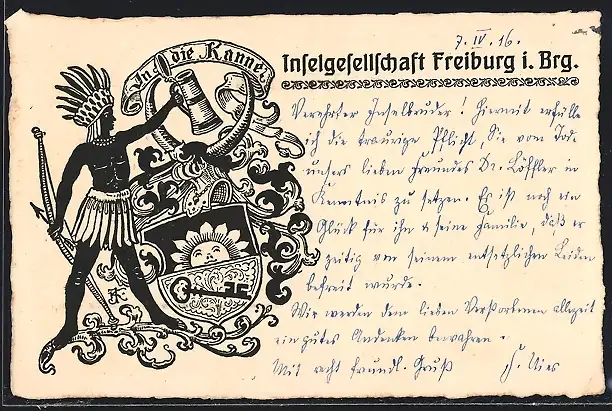 In die Kanne!
Inselgesellschaft Freiburg i. Brg.
7. IV. 16.
Verehrter Inselbruder! Hiermit erfülle
ich die traurige Pflicht, Sie vom Tod
unsers lieben Freundes Dr. Löffler in
Kenntnis zu setzen. Es ist noch ein
Glück für ihn & seine Familie, daß er
zeitig von seinem entsetzlichen Leiden
befreit wurde.
Wir werden dem lieben Verstorbenen allezeit
ein gutes Andenken bewahren.
Mit recht freundl. Gruß